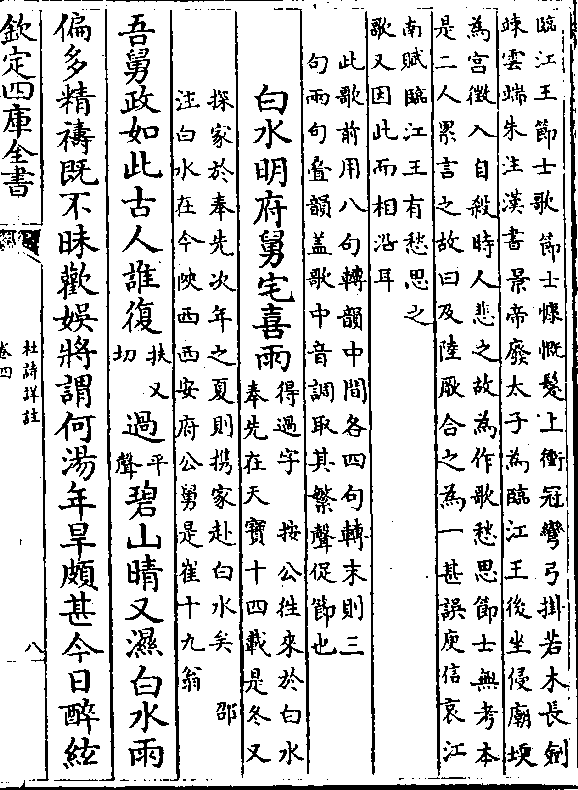 臨江王節士歌節士慷慨髮上衝冠彎弓掛若木長劍
竦雲端朱注漢書景帝廢太子為臨江王後坐侵廟堧
為宮徵入自殺時人悲之故為作歌愁思節士無考本
是二人累言之故曰及陸厥合之為一甚誤庾信哀江
南賦臨江王有愁思之
歌又因此而相沿耳
此歌前用八句轉韻中間各四句轉末則三
句兩句叠韻蓋歌中音調取其繁聲促節也
白水明府舅宅喜雨 得過字 按公往來於白水
奉先在天寶十四載是冬又
探家於奉先次年之夏則携家赴白水矣 邵
注白水在今陜西西安府公舅是崔十九翁
吾舅政如此古人誰復扶又切過平聲碧山晴又濕白水雨
偏多精禱既不昧歡娛將謂何湯年旱頗甚今日醉絃
欽定四庫全書
杜詩詳註
卷四
八